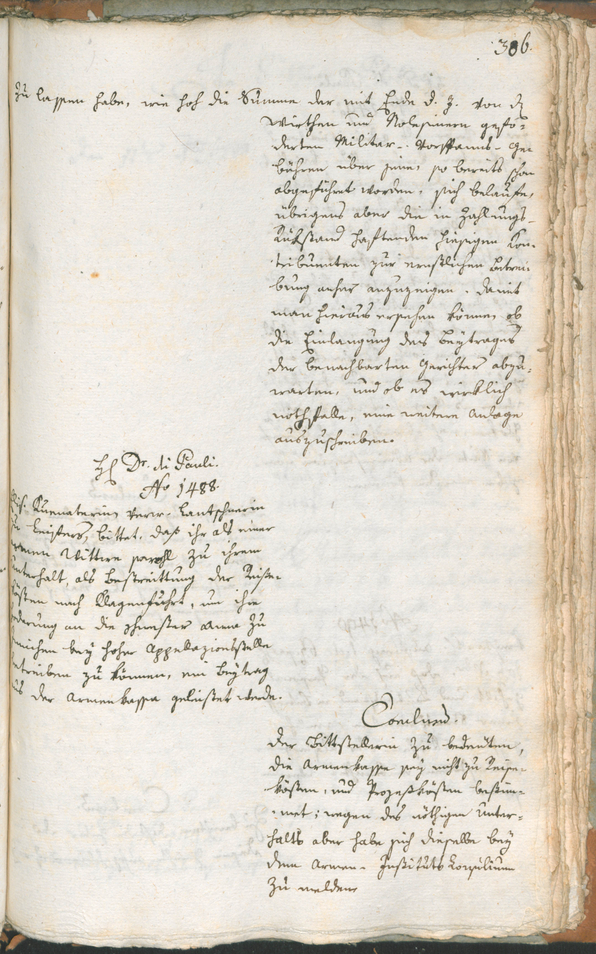 386.
zu lassen habe, wie hoch die Summe der mit Ende d. J. von den
Wirthen und Rolesinern gefo-
derten Militar-Vorspanns-Ge-
bühren über jene, so bereits schon
abgeführet worden, sich belaufe,
übrigens aber die in Zahlungs-
Rükstand haftenden hiesigen Kon-
tribuenten zur ernstlichen Betrei-
bung anher anzuzeigen, damit
man hieraus ersehen könne, ob
die Einlangung des Beytrages
der benachbarten Gerichter abzu-
warten, und ob es wirklich
nothfalle, eine weitere Anlage
auszuschreiben.
H Dr. di Pauli.
No 1488.
verw. Lantschnerin
bittet, daß ihr als einer
armen Wittwe sowohl zu ihrem
Unterhalt, als Bestreittung der Reise-
kösten nach Klagenfuhrt, um ihre
Foderung an die Schwester Anna zu
bey hoher Appellazionsstelle
betreiben zu können, ein Beytrag
aus der Armenkassa geleistet werde.
Conclusum.
Der Bittstellerin zu bedeuten,
die Armenkasse sey nicht zu Reise-
kösten, und Prozeßkösten bestim-
met; wegen des nöthigen Unter-
halts aber habe sich dieselbe bey
dem Armen-Instituts Konsilium
zu melden.